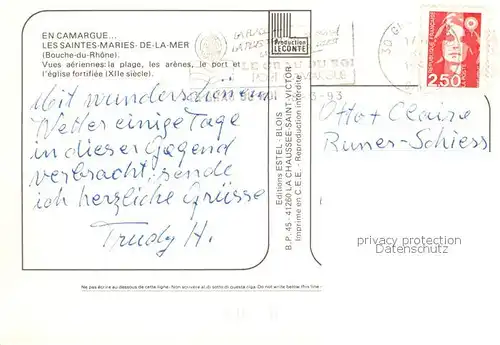 EN CAMARGUE...
LES SAINTES-MARIES-DE-LA-MER
(Bouche-du-Rhône).
Vues aériennes: la plage, les arènes, le port et
l'église fortifiée (XIIe siècle).
Mit wunderschönem
Wetter einige Tage
in dieser Gegend
verbracht, sende
ich herzliche Grüsse
Trudy H.
Production
LECONTE
Editions ESTEL - BLOIS
B.P. 45 - 41260 LA CHAUSSEE-SAINT-VICTOR
Imprimé en C.E.E. - Reproduction interdite
LE GRAU DU ROI
30
-93
REPUBLIQUE FRANÇAISE
LA POSTE
2,50
Otto + Claire
Runer-Schiess
privacy protection
Datenschutz
Ne pas écrire au-dessous de cette ligne. Non scrivere al di sotto di questa riga. Do not write below this line